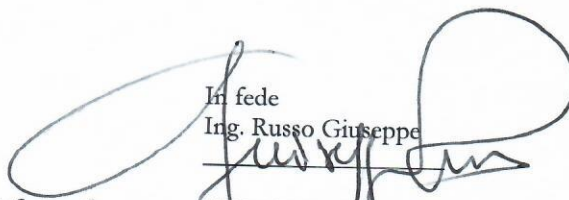 In fede
Ing. Russo Giuseppe